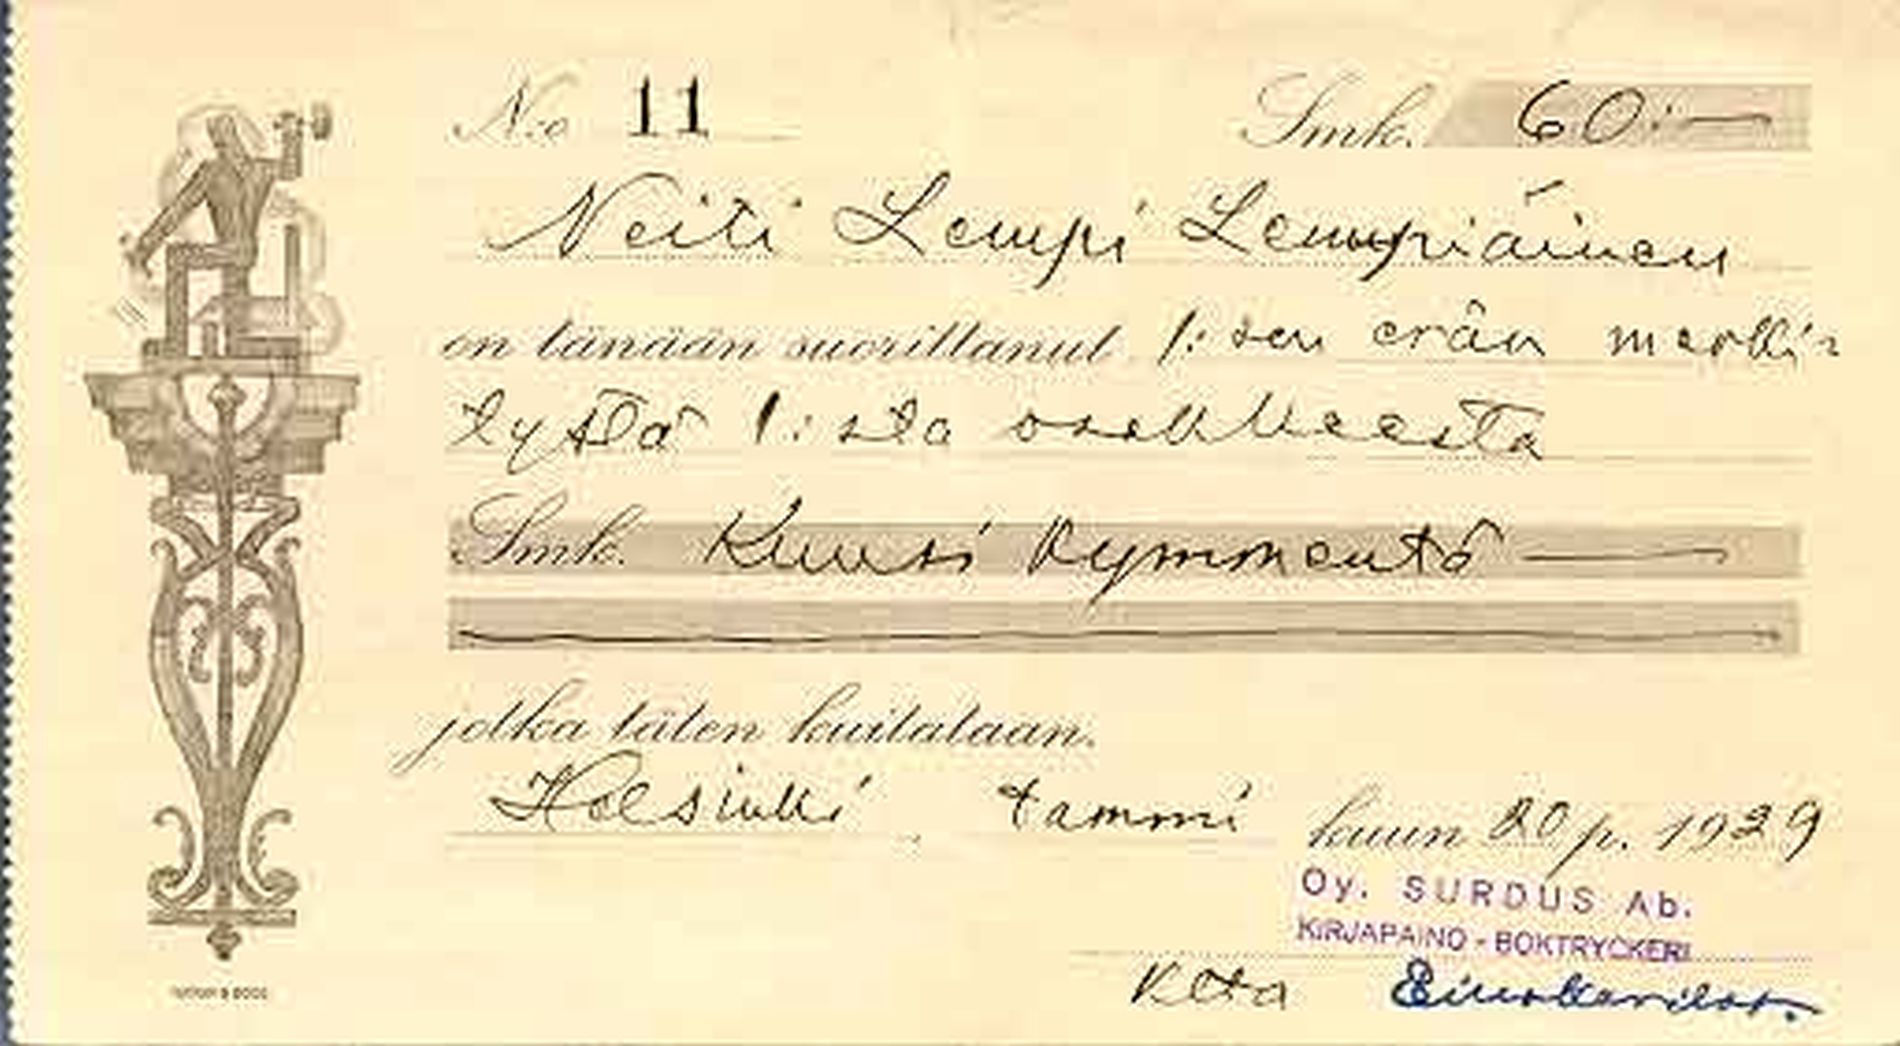 N:o 11 Smk. 60:—
Neiti Lempi Lempiäinen
on tänään suorittanut 1:sen erän merkit-
tystä 1:stä osakkeesta
Smk. Kuusi kymmentä —
jotka täten kuitataan.
Helsinki tammi kuun 20 p. 1929
Oy. SURDUS Ab.
KIRJAPAINO - BOKTRYCKERI